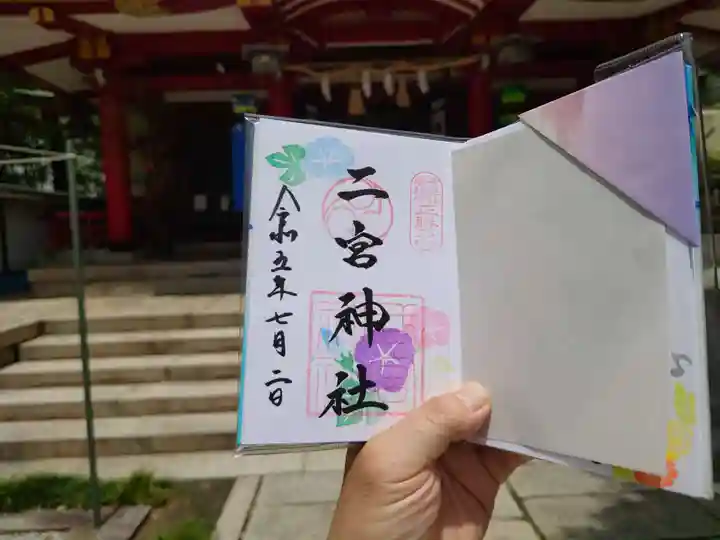 二宮神社
令和五年七月二日